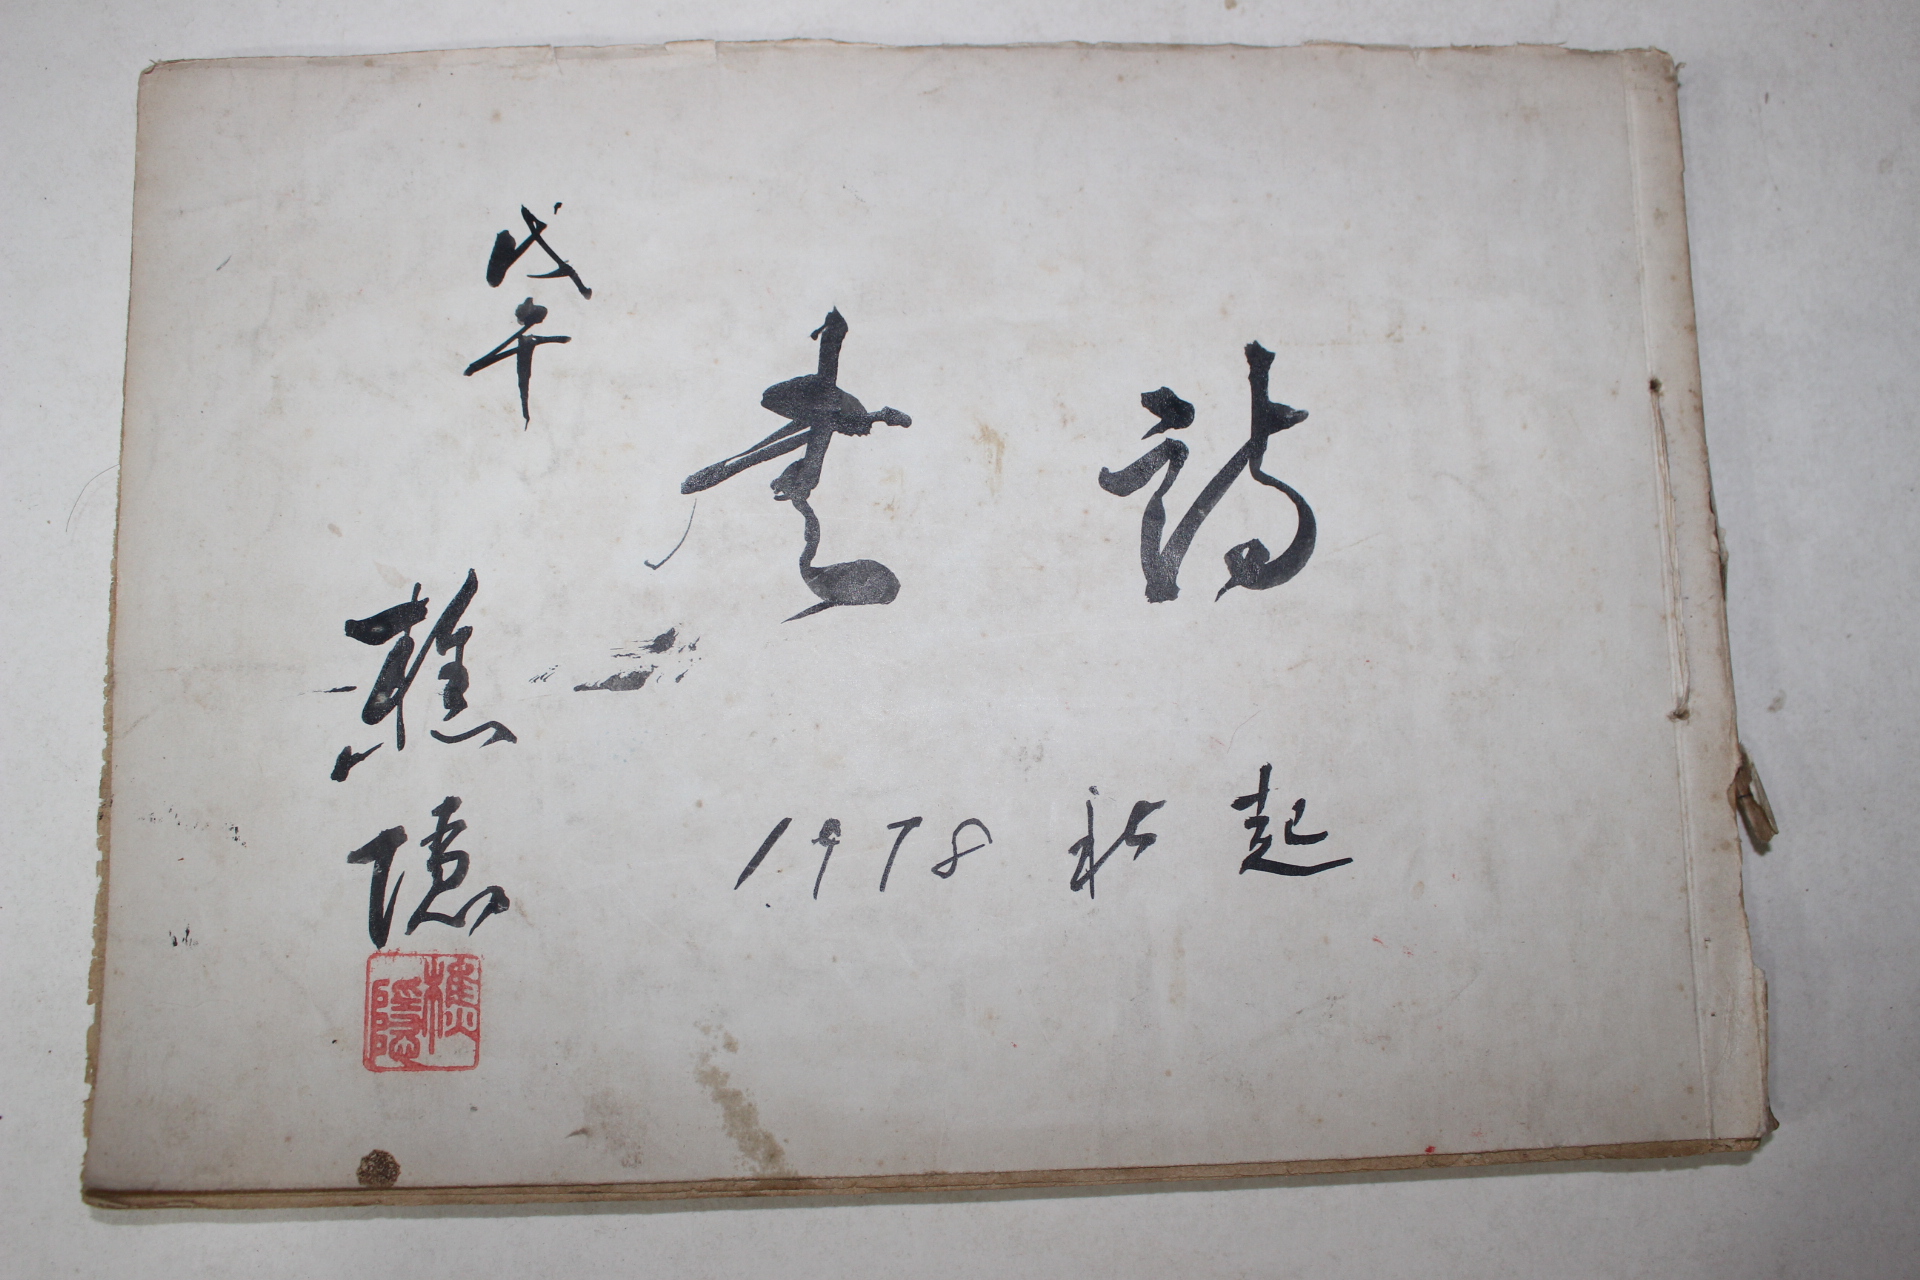 詩書
1978 秋起
戊午
樵隱
樵隱